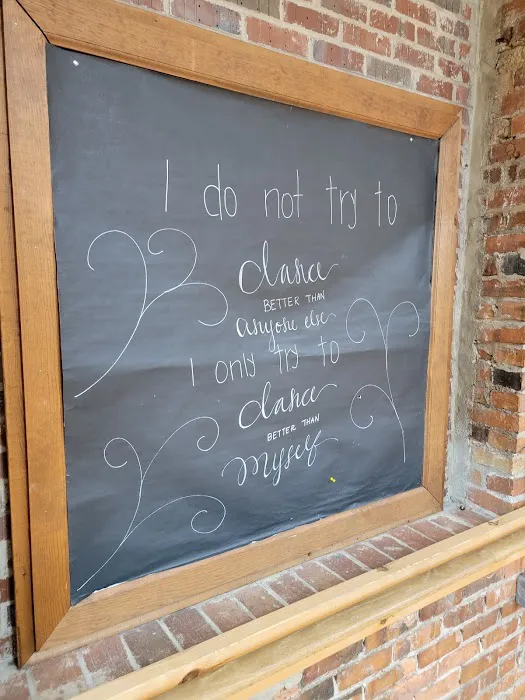 I do not try to
dance
BETTER THAN
anyone else
I only try to
dance
BETTER THAN
myself